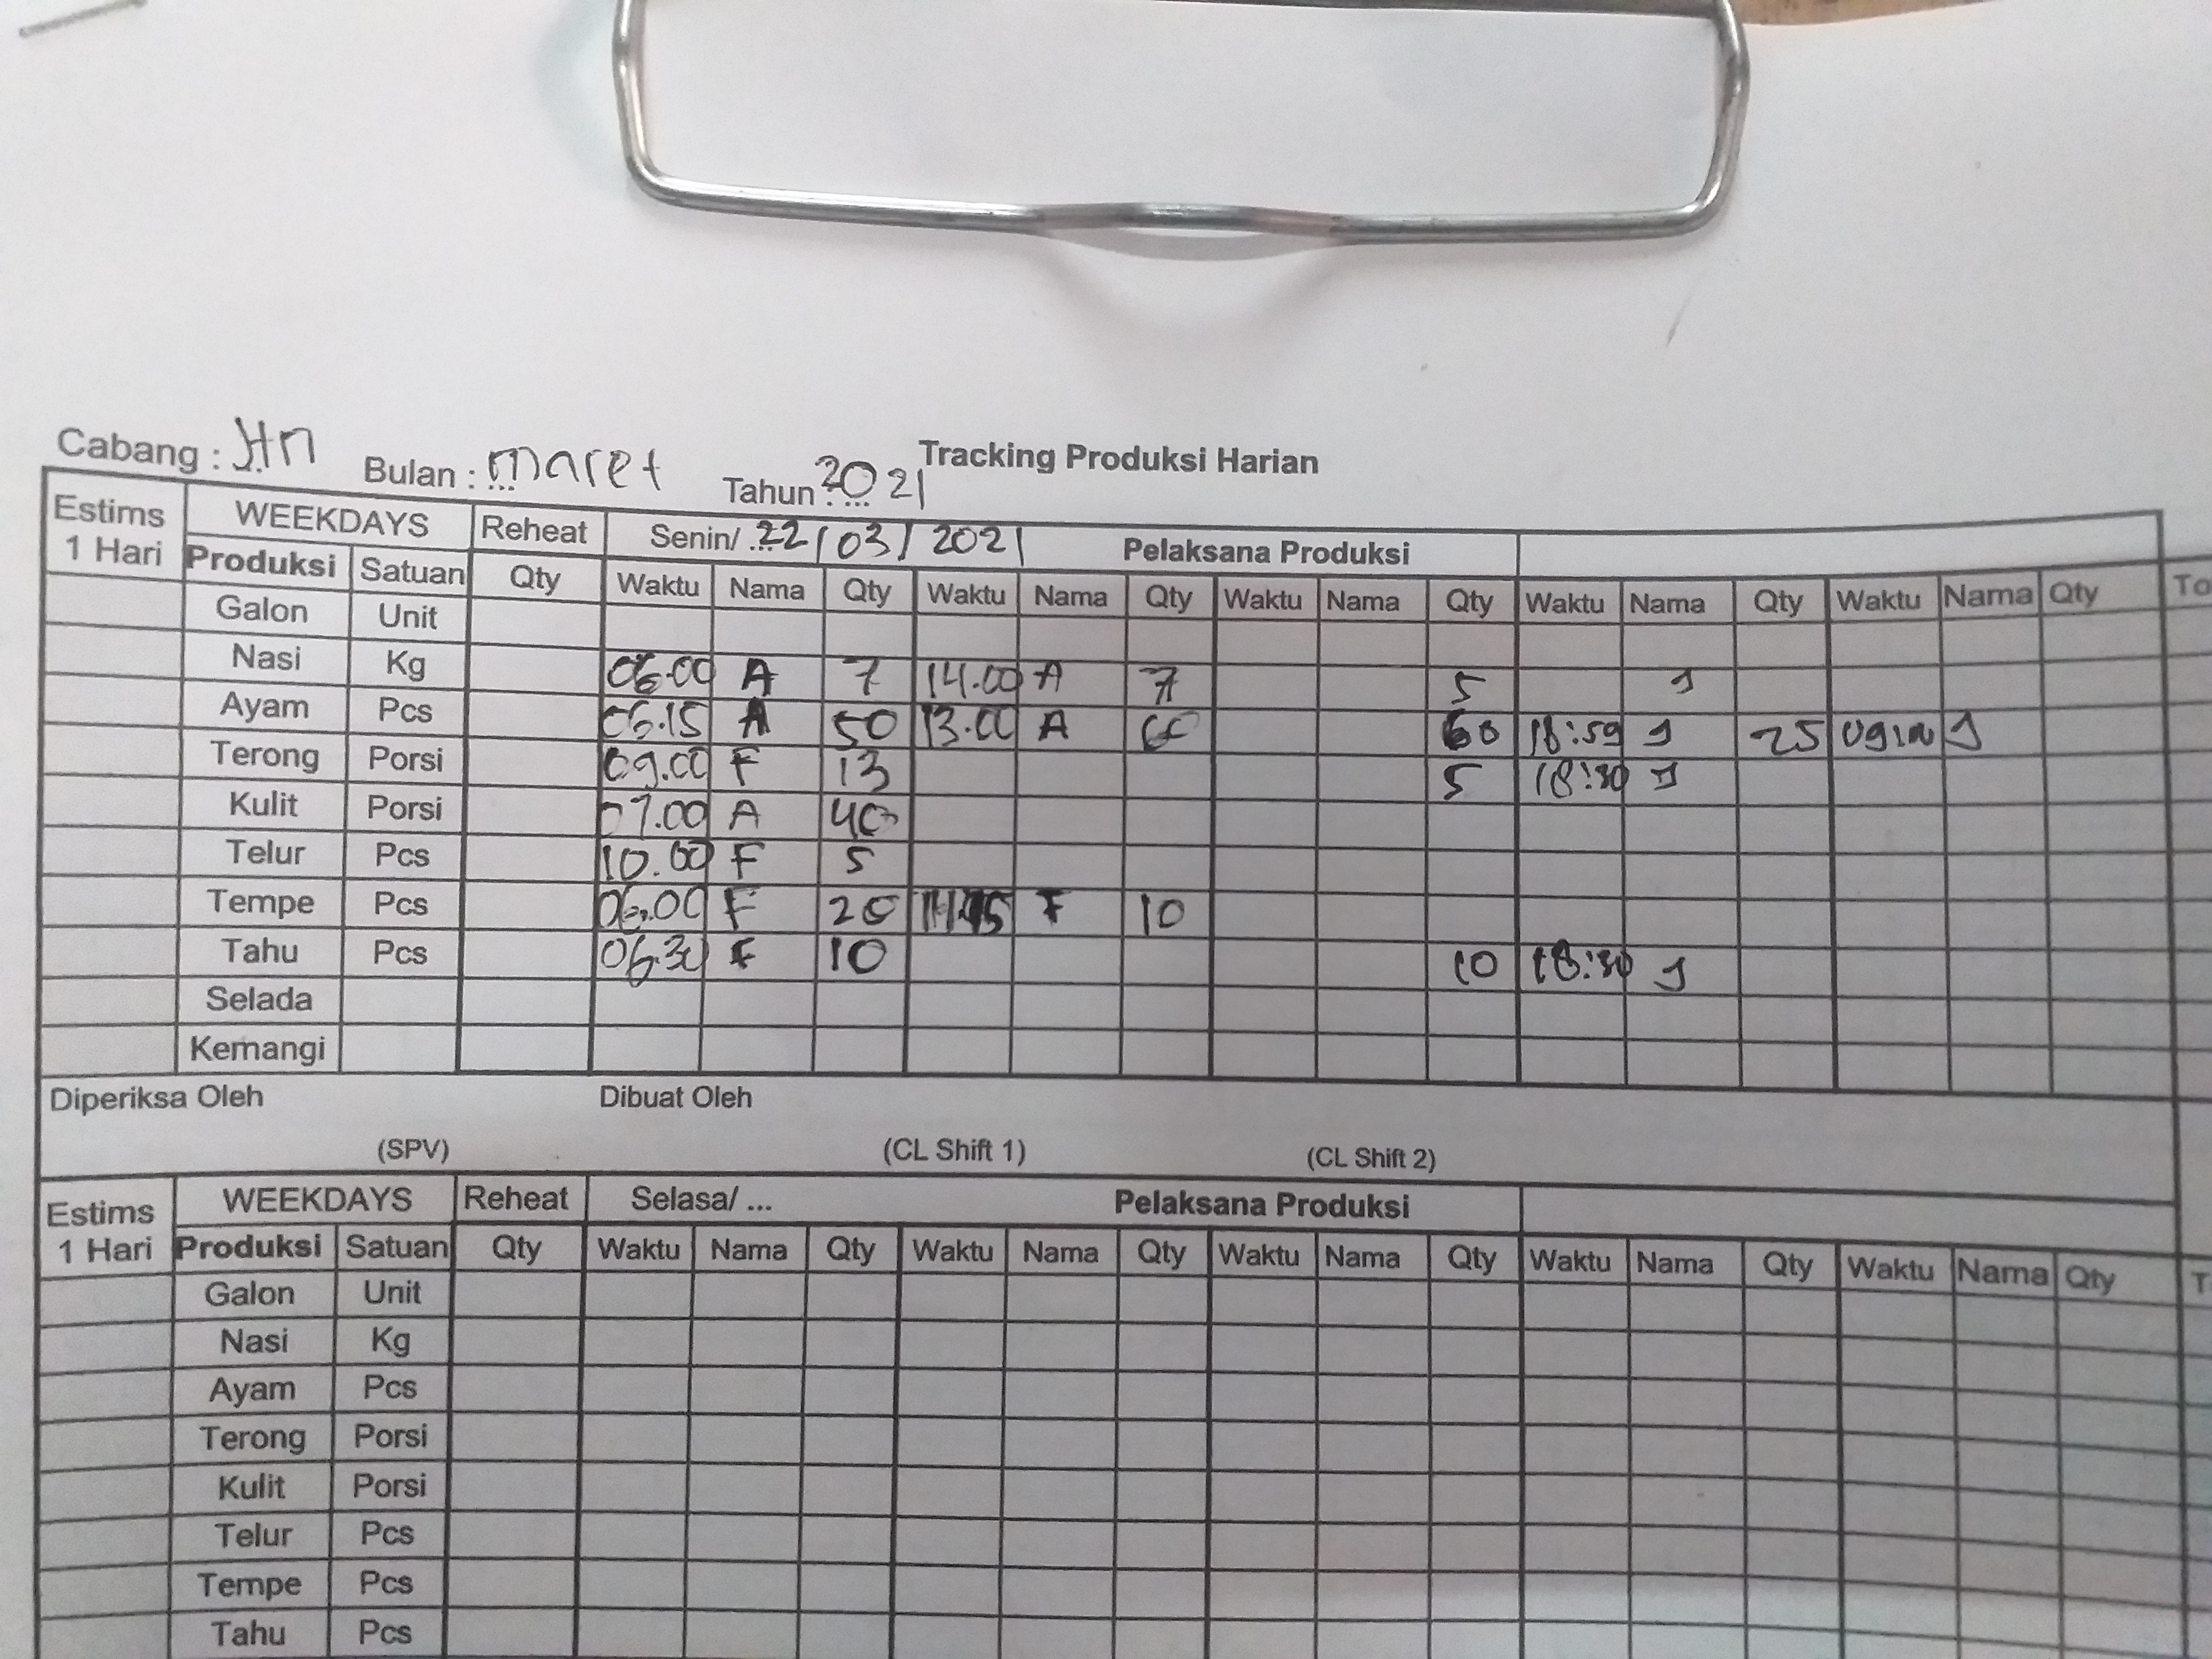 Cabang : JTN Bulan : maret Tahun 2021 Tracking Produksi Harian
Estims 1 Hari WEEKDAYS Reheat Senin/ 22/03/2021 Pelaksana Produksi
Produksi Satuan Qty Waktu Nama Qty Waktu Nama Qty Waktu Nama Qty Waktu Nama Qty Waktu Nama Qty To
Galon Unit
Nasi Kg 06.00 A 7 14.00 A 7 5 J
Ayam Pcs 06.15 A 50 13.00 A 60 60 18:59 J 25 J
Terong Porsi 09.00 F 13 5 18:30 J
Kulit Porsi 07.00 A 40
Telur Pcs 10.00 F 5
Tempe Pcs 06.00 F 20 F 10
Tahu Pcs 06.30 F 10 10 18:30 J
Selada
Kemangi
Diperiksa Oleh Dibuat Oleh
(SPV) (CL Shift 1) (CL Shift 2)
Estims 1 Hari WEEKDAYS Reheat Selasa/ ... Pelaksana Produksi
Produksi Satuan Qty Waktu Nama Qty Waktu Nama Qty Waktu Nama Qty Waktu Nama Qty Waktu Nama Qty T
Galon Unit
Nasi Kg
Ayam Pcs
Terong Porsi
Kulit Porsi
Telur Pcs
Tempe Pcs
Tahu Pcs